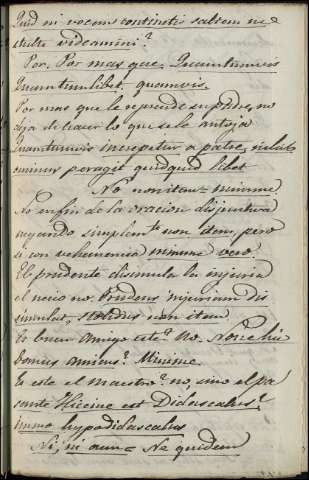 Quid ni vocem continetis saltem ne
stulte videamini?
Por. Por mas que. Quantumvis
Quantumlibet, quamvis.
Por mas que le reprende su padre, no
deja de hacer lo que se le antoja
Quantumvis increpetur a patre, nihilo
minus peragit quidquid libet
No = non item = minime.
No en fin de la oracion disjuntiva
negando simplemte non item, pero
si con vehemencia minime vero.
El prudente disimula la injuria
el necio no. Prudens injuriam dis
simulat, stolidus non item
Es buen amigo este? no. Non e hic
bonus amicus? Minime.
Es este el maestro? no, sino el pa
sante Hiccine est Didascalus?
immo hypodidascalus
Ni, ni aun = Ne quidem